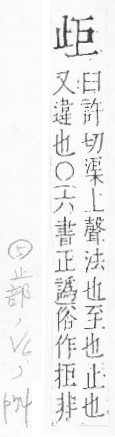 歫
臼許切渠上聲法也至也止也
又違也〇六書正譌俗作拒非
⑤止部, V6, p74